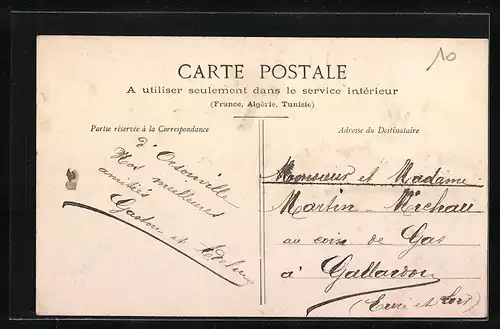 10
CARTE POSTALE
A utiliser seulement dans le service intérieur
(France, Algérie, Tunisie)
Partie réservée à la Correspondance
Adresse du Destinataire
d'Orsonville
Nos meilleures
amitiés
Gaston et
Monsieur et Madame
Martin - Michau
au coin de Gas
à Gallardon
(Eure et Loir)